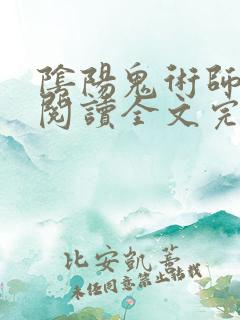 陰陽鬼術師
閱讀全文完
比安凱薏
未经同意禁止转载